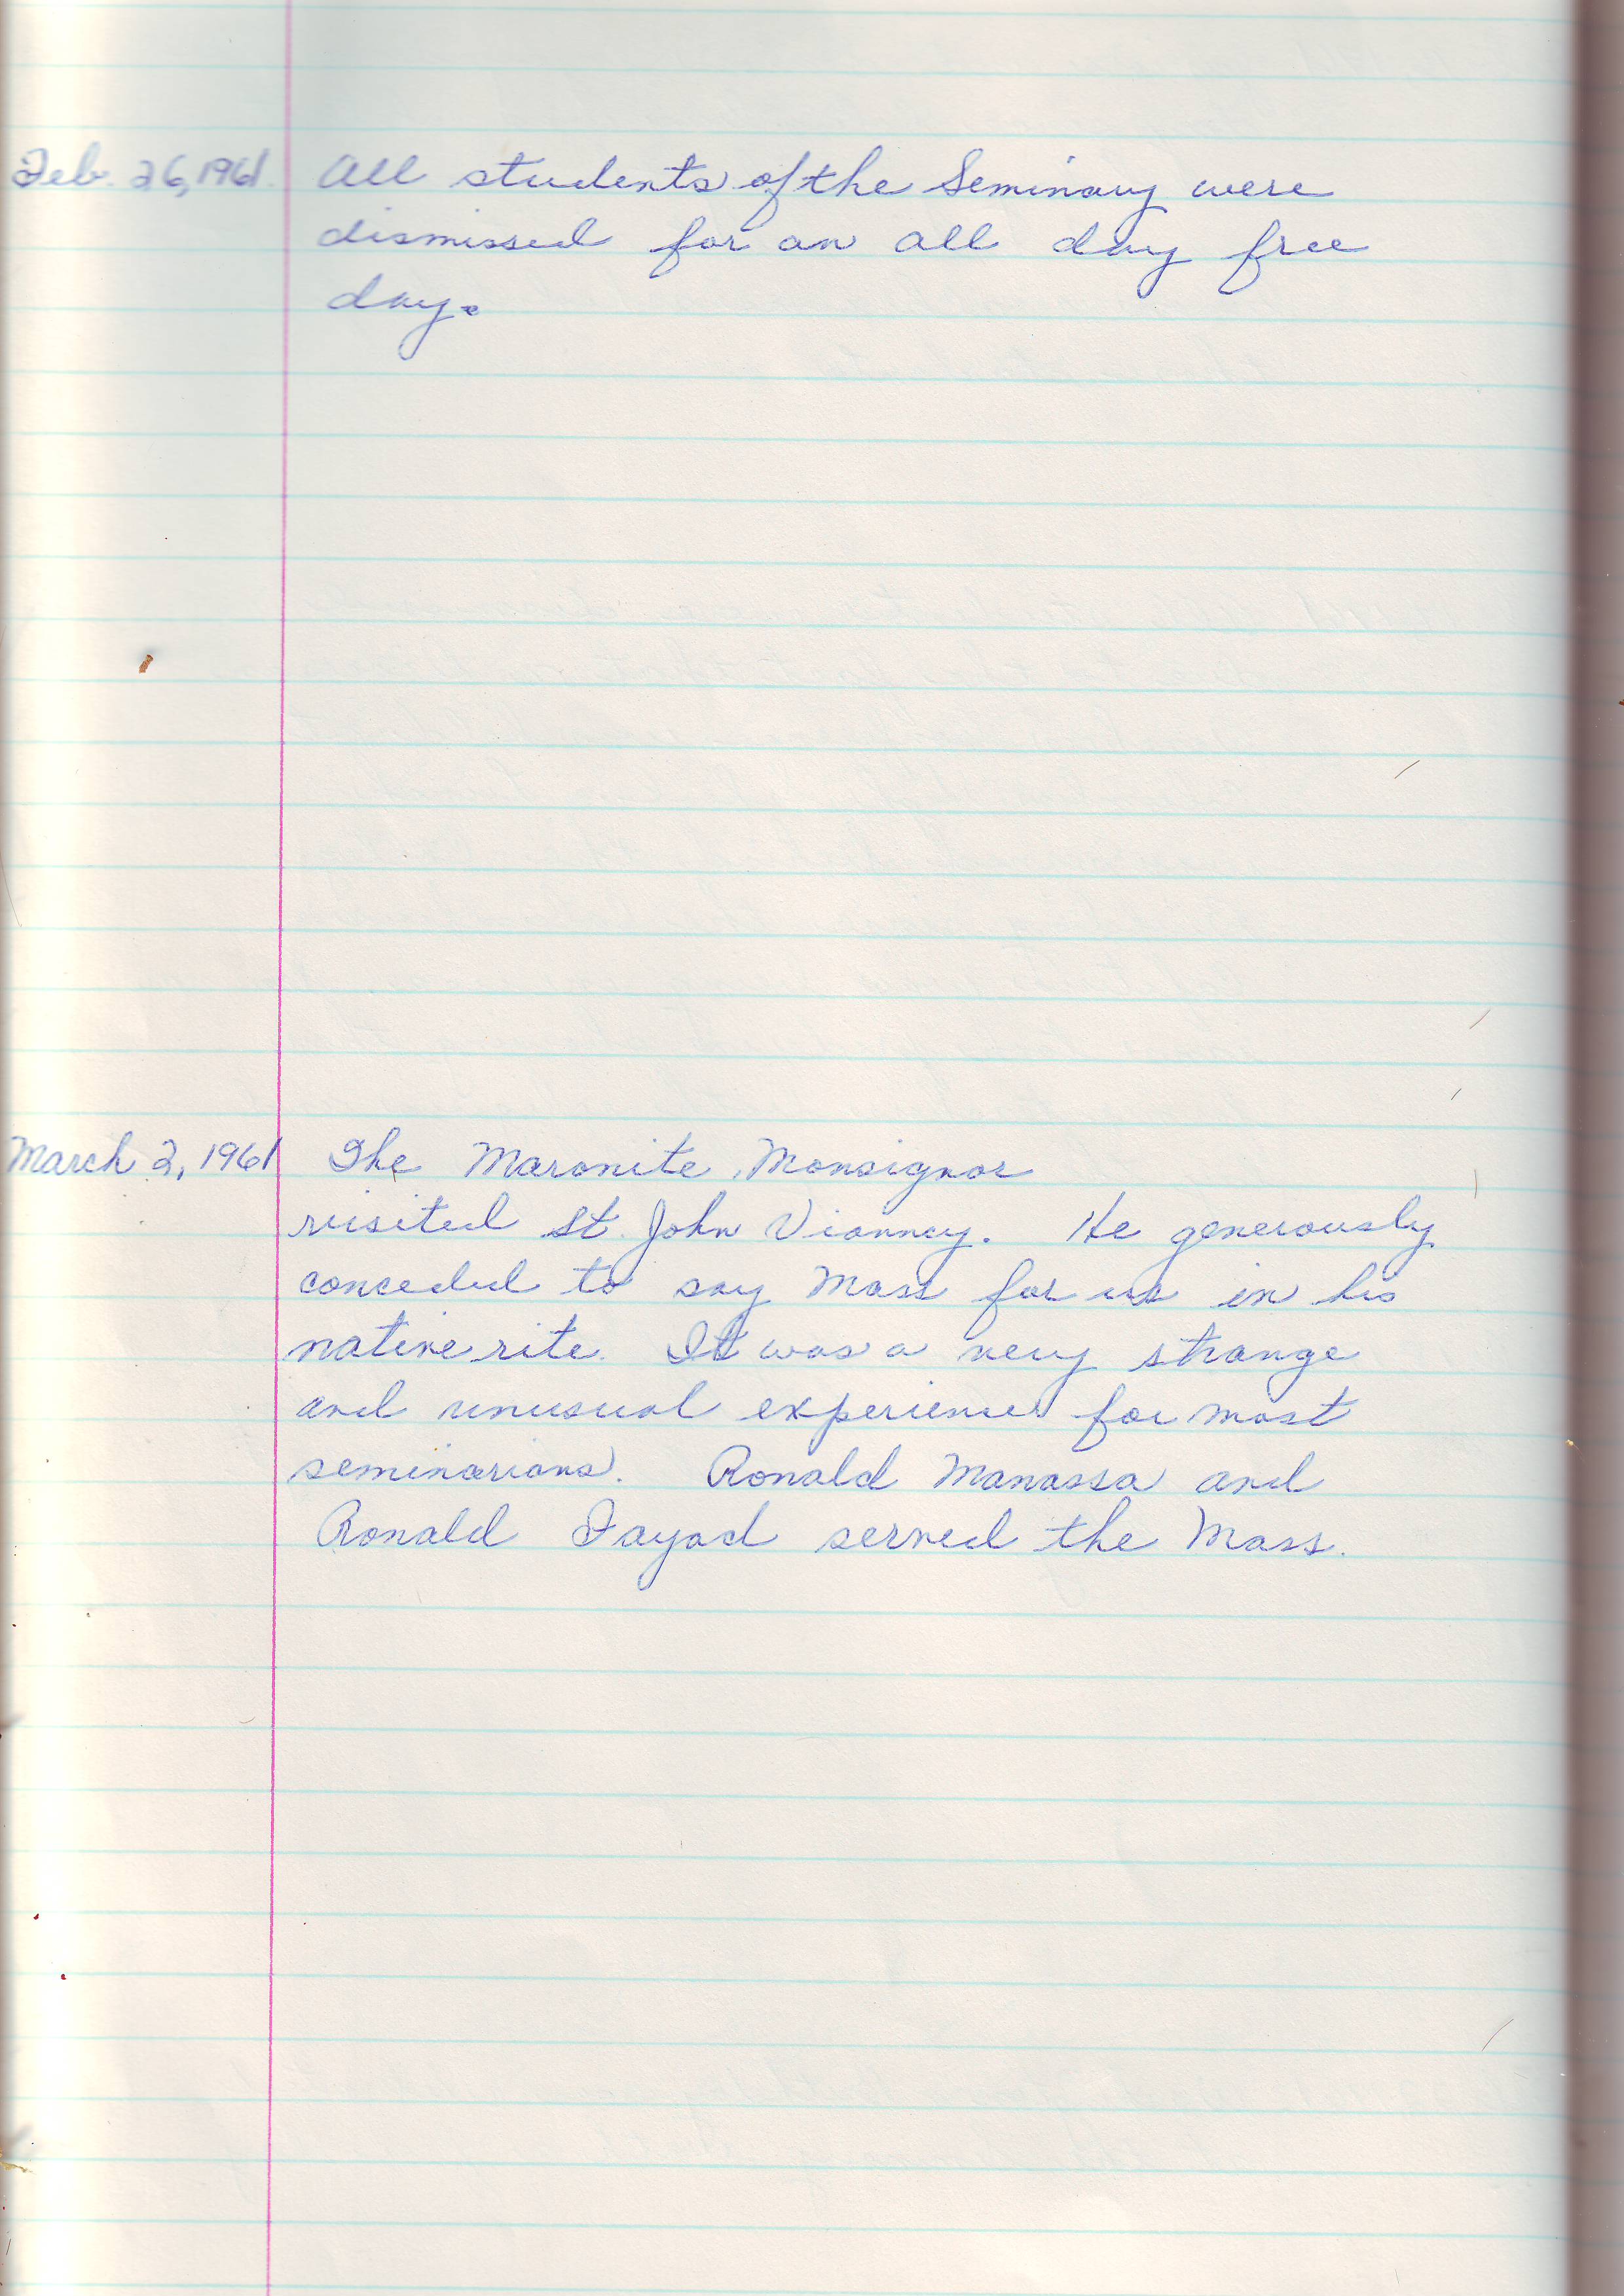 Feb. 26, 1961. All students of the Seminary were
dismissed for an all day free
day.
March 2, 1961 The Maronite Monsignor
visited St. John Vianney. He generously
conceded to say Mass for us in his
native rite. It was a very strange
and unusual experience for most
seminarians. Ronald Manassa and
Ronald Fayad served the Mass.